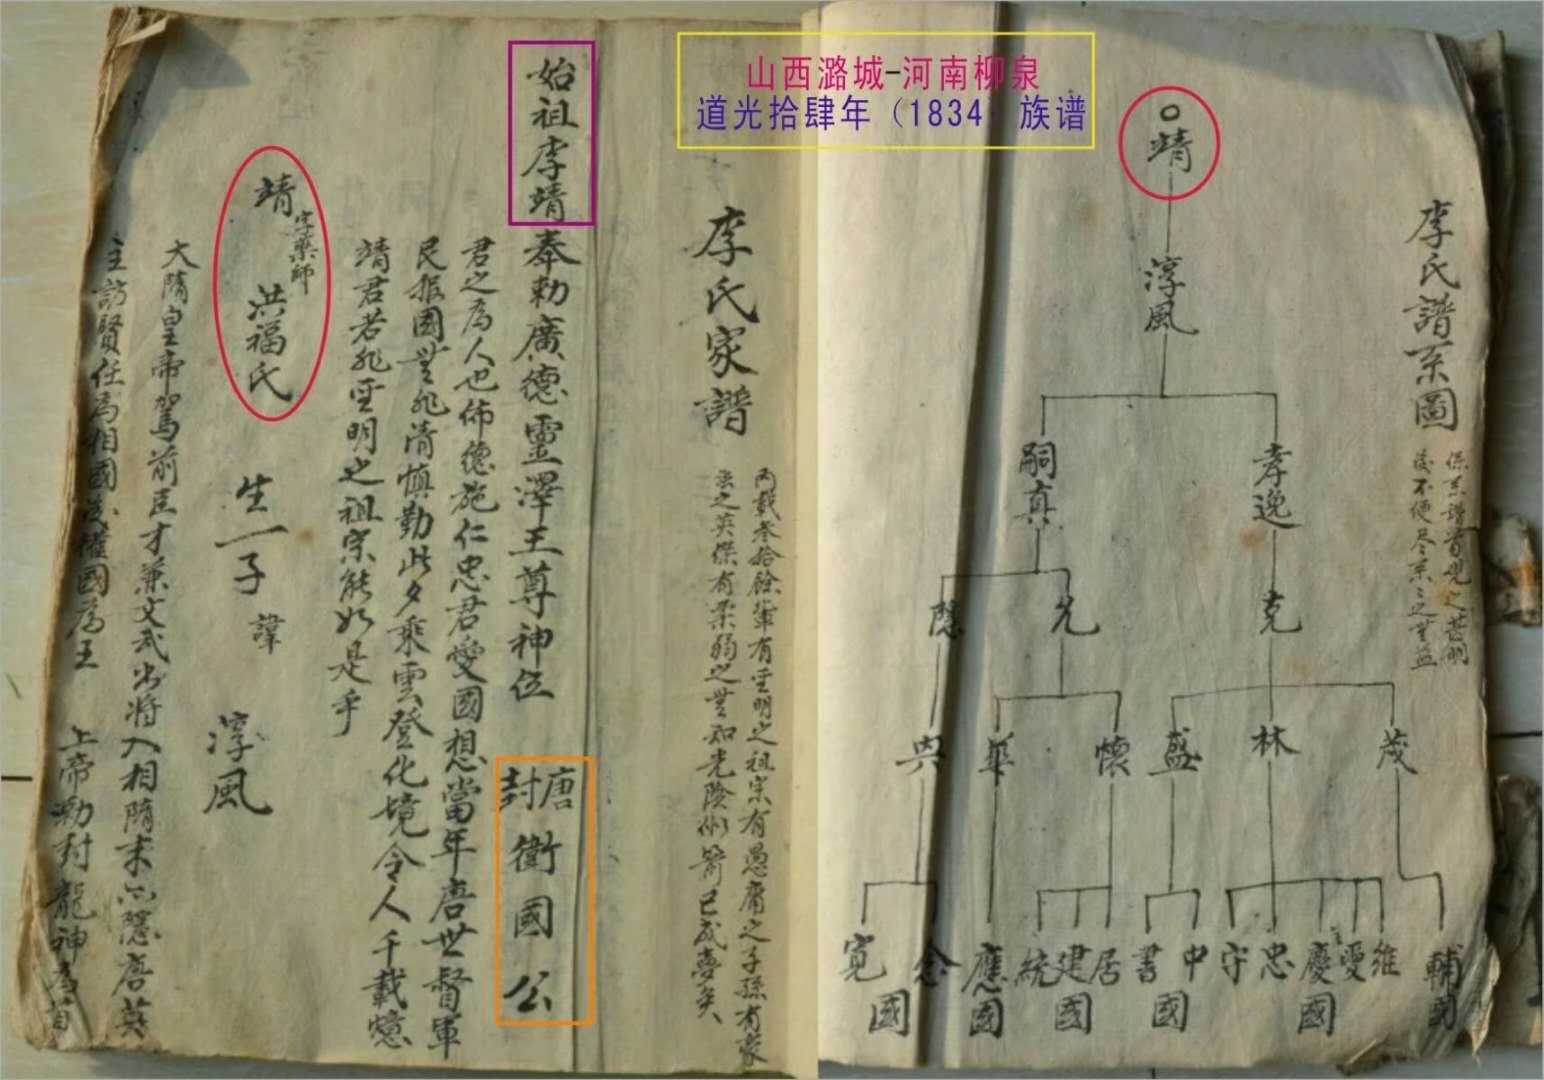 山西潞城-河南柳泉
道光拾肆年（1834）族谱
李氏譜系圖
係系譜
後不便尽系之
靖
淳風
孝逸
嗣真
克
允
隱
茂
林
盛
懷
華
興
輔國
維
愛
慶國
忠
守
中
書國
居
建國
統
應國
念
寬國
李氏家譜
両載叁拾餘輩有聖明之祖宗有愚庸之子孫有豪
有柔弱之輩和光陰似箭已成夢矣
始祖李靖奉勅廣德靈澤王尊神位
唐封衛國公
君之為人也佈德施仁忠君愛國想當年唐世督軍
民報國無非清慎勤此夕乘雲登化境令人千載憶
靖君若非聖明之祖宗能如是乎
靖字藥師 洪福氏 生一子 諱 淳風
大隋皇帝駕前臣才兼文武出將入相隋末
隱唐英
主訪賢任為相國
權國為王 上帝勅封龍神為首